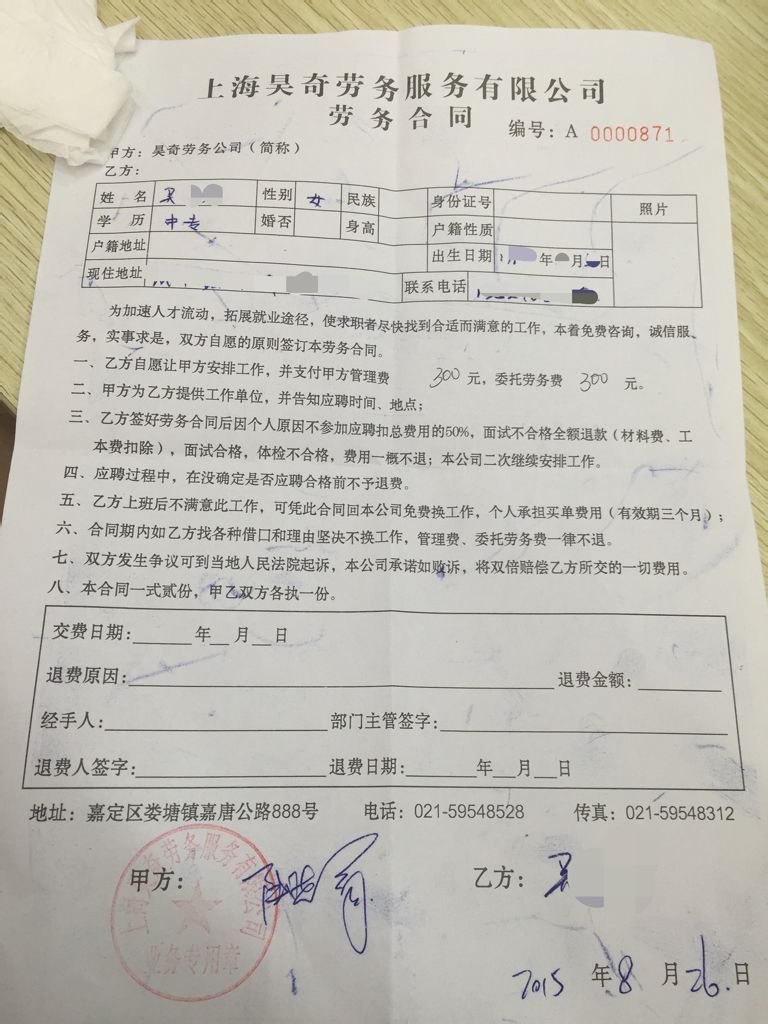 上海昊奇劳务服务有限公司
劳务合同
编号：A 0000871
甲方：昊奇劳务公司（简称）
乙方：
姓 名 吴 性别 女 民族 身份证号 照片
学 历 中专 婚否 身高 户籍性质
户籍地址 出生日期 年 月 日
现住地址 联系电话
为加速人才流动，拓展就业途径，使求职者尽快找到合适而满意的工作，本着免费咨询，诚信服
务，实事求是，双方自愿的原则签订本劳务合同。
一、乙方自愿让甲方安排工作，并支付甲方管理费 300 元，委托劳务费 300 元。
二、甲方为乙方提供工作单位，并告知应聘时间、地点；
三、乙方签好劳务合同后因个人原因不参加应聘扣总费用的50%，面试不合格全额退款（材料费、工
本费扣除），面试合格，体检不合格，费用一概不退；本公司二次继续安排工作。
四、应聘过程中，在没确定是否应聘合格前不予退费。
五、乙方上班后不满意此工作，可凭此合同回本公司免费换工作，个人承担买单费用（有效期三个月）；
六、合同期内如乙方找各种借口和理由坚决不换工作，管理费、委托劳务费一律不退。
七、双方发生争议可到当地人民法院起诉，本公司承诺如败诉，将双倍赔偿乙方所交的一切费用。
八、本合同一式贰份，甲乙双方各执一份。
交费日期：______年__月__日
退费原因：______ 退费金额：______
经手人：______ 部门主管签字：______
退费人签字：______ 退费日期：______年__月__日
地址：嘉定区娄塘镇嘉唐公路888号 电话：021-59548528 传真：021-59548312
上海昊奇劳务服务有限公司
甲方： 乙方：吴
业务专用章
2015 年 8 月 26 日